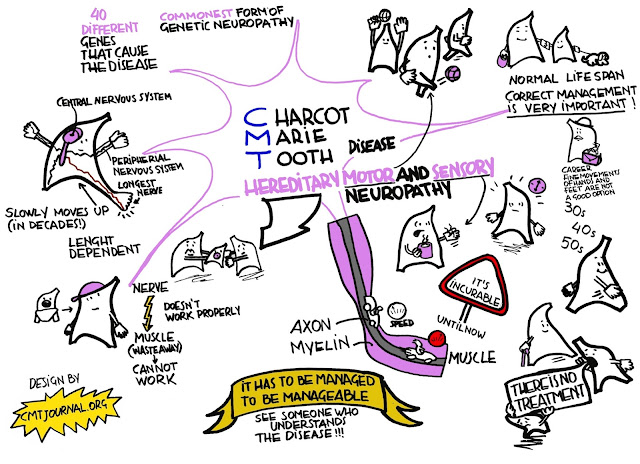 40
DIFFERENT
GENES
THAT CAUSE
THE DISEASE
COMMONEST FORM OF
GENETIC NEUROPATHY
CHARCOT
MARIE
TOOTH DISEASE
HEREDITARY MOTOR AND SENSORY
NEUROPATHY
NORMAL LIFE SPAN
CORRECT MANAGEMENT
IS VERY IMPORTANT!
CAREER
FINE MOVEMENTS
OF HANDS AND
FEET ARE NOT
A GOOD OPTION
30s
40s
50s
CENTRAL NERVOUS SYSTEM
PERIPHERIAL
NERVOUS SYSTEM
LONGEST
NERVE
SLOWLY MOVES UP
(IN DECADES!)
LENGHT
DEPENDENT
NERVE
DOESN'T
WORK PROPERLY
MUSCLE
(WASTE AWAY)
CANNOT
WORK
AXON
MYELIN
SPEED
MUSCLE
IT'S
INCURABLE
UNTIL NOW
THERE IS NO
TREATMENT
IT HAS TO BE MANAGED
TO BE MANAGEABLE
SEE SOMEONE WHO
UNDERSTANDS
THE DISEASE!!!
DESIGN BY
CMTJOURNAL.ORG